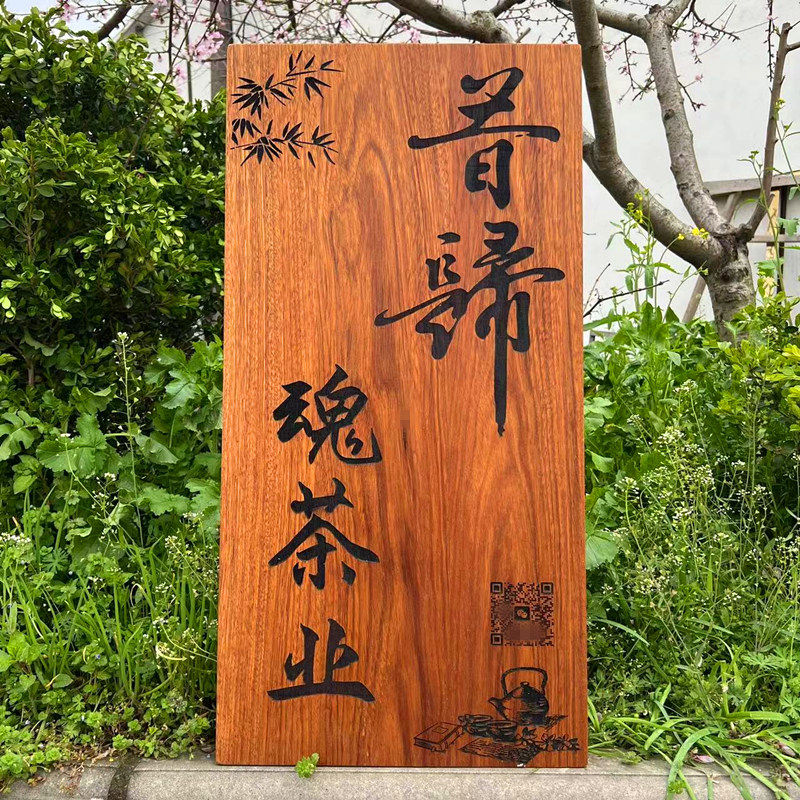 昔歸
魂茶业